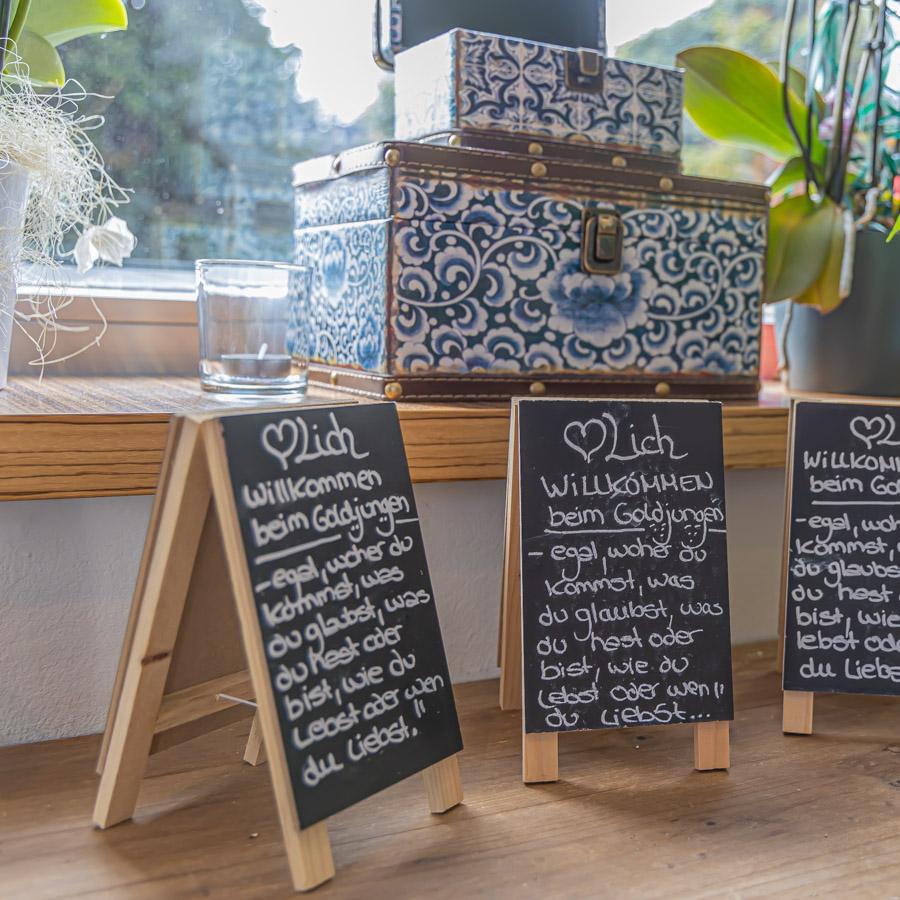 ♡Lich
Willkommen
beim Goldjungen
-egal, woher du
kommst, was
du glabst, was
du hast oder
bist, wie du
Lebst oder wen
du Liebst.!!
♡Lich
WiLLKOMMEN
beim Goldjungen
- egal, woher du
kommst, was
du glaubst, was
du hast oder
bist, wie du
Lebst oder wen
du Liebst...
♡L
WiLLKOM
beim Gol
-egal, woh
kommst,
du glaubs
du hast
bist, wie
lebst od
du Liebs